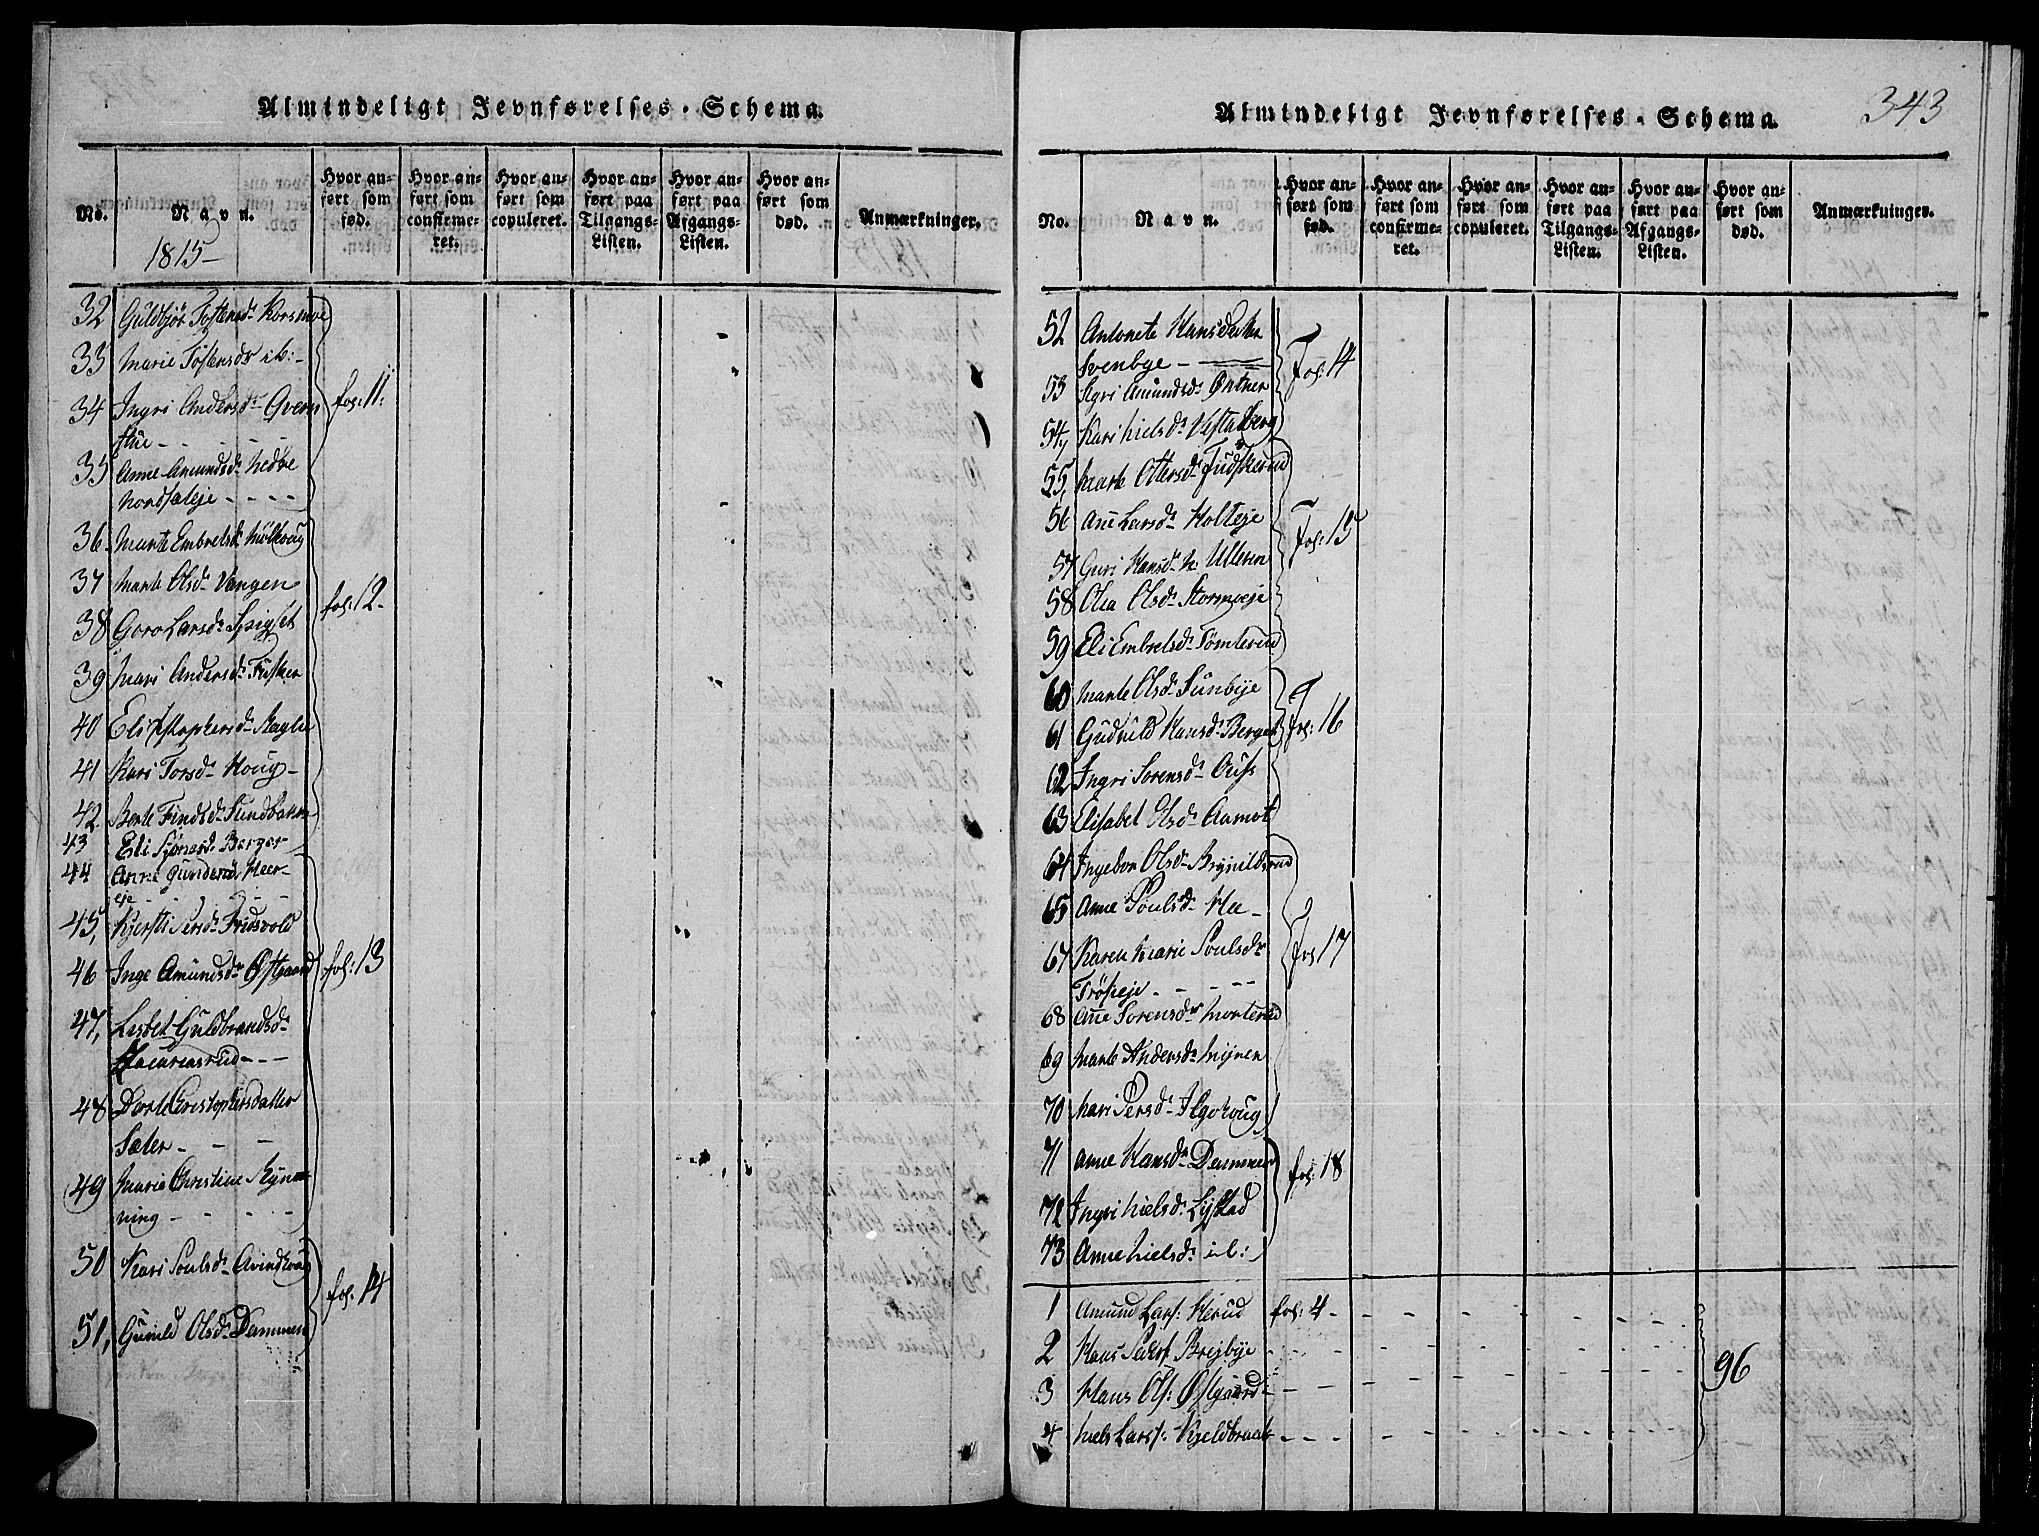 Almindeligt Jevnførelses-Schema.
No.
Navn.
Hvor anført som fød.
Hvor anført som confirmeret.
Hvor anført som copuleret.
Hvor anført paa Tilgangs-Listen.
Hvor anført paa Afgangs-Listen.
Hvor anført som død.
Anmærkninger.
1815
32 Guldbjør Tostensdr Korsmoe
33 Marie Tostensdr ib:
34 Ingri Andersdr Gvern
stue
fol: 11.
35 Anne Amundsdr Nedre
Nordsæteje
36 Marte Embretsdr
37 Marte Olsdr Vangen
fol: 12
38 Goro Larsdr
39 Mari Andersdr Fusker
40 Eli Kragle
41 Kari Torsdr Houg
42 Berte Findsdr Sundbakke
43 Eli Berger
44 Anne Gundersd Heer
eje
45, Kjersti Persdr Fridsvold
46 Inge Amundsdr Østgaard
fol: 13
47, Lisbet Guldbrandsdr
Zacariasrud
48 Dorte Cristophersdatter
Sæter
49 Marie Christine Rynn
ning
50 Kari Poulsdr
51, Gunild Olsdr Dammen
fol. 14
Almindeligt Jevnførelses-Schema.
343
No.
Navn.
Hvor anført som fød.
Hvor anført som confirmeret.
Hvor anført som copuleret.
Hvor anført paa Tilgangs-Listen.
Hvor anført paa Afgangs-Listen.
Hvor anført som død.
Anmærkninger.
52 Antonete Hansdatter
Svenbye
fol: 14
53 Sigri Amundsdr
54, Kari Nielsdr Vestaberg
55, Marte Ottersdr
56 Ane Larsdr Holteje
fol: 15
57 Guri Hansdr N. Ulleren
58 Olea Olsdr Stormoeje
59 Eli Embretsdr Tømterud
60 Marte Olsdr Sunbye
61 Gudnild Hansdr Berger
fol: 16
62 Ingri Sorensdr Ouss
63 Elisabet Olsdr Aamot
64 Ingebor Olsdr Brynildsrud
65 Anne Poulsdr Hee
67 Karen Marie Poulsdr
Trøseje
fol 17
68 Ane Sorensdr Morterud
69 Marte Andersdr Mynen
70 Mari Persdr
71 Anne Hansdr Dammen
fol: 18
72 Ingri Nielsdr Lystad
73 Anne Nielsdr ib:
1 Amund Lars: Herud fol: 4
2 Hans Peders Brejbye
96
3 Hans Ols: Østgaard
4 Niels Lars: